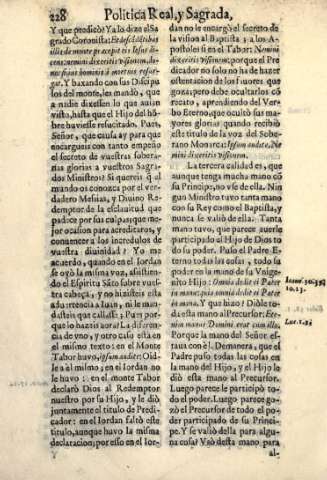 228 Politica Real, y Sagrada,
Y que predicò? Ya lo dize el Sa-
grado Coronista: Et descendentibus
illis de monte præcepit eis Iesus di-
cens: nemini dixeritis visionem, do-
nec filius hominis à mortuis resur-
gat. Y baxando con sus Discipu-
los del monte, les mandò, que
a nadie dixessen lo que auian
visto, hasta que el Hijo del hõ-
bre huviesse resucitado. Pues,
Señor, que causa ay para que
encargueis con tanto empeño
el secreto de vuestras sobera-
nias glorias a vuestros Sagra-
dos Ministros? Si quereis q̃ al
mundo os conozca por el ver-
dadero Mesias, y Diuino Re-
demptor de la esclauitud que
padece por su culpa; que me-
jor ocasion para acreditaros, y
conuencer a los incredulos de
vuestra diuinidad? Yo me
acuerdo, quando en el Iordan
se oyò la misma voz, assistien-
do el Espiritu Sãto sobre vuestra
cabeça, y no hizisteis esta
aduertencia a Iuan, ni le man-
dasteis que callasse: Pues por-
que lo hazeis aora? La diferencia
de vno, y otro caso està en
el mismo texto: en el Monte
Tabor huvo, ipsum audite: Oid-
le a èl mismo; en el Iordan no
le huvo: en el monte Tabor
declarò Dios al Redemptor
nuestro por su Hijo, y le diò
juntamente el titulo de Predi-
cador: en el Iordan faltò este
titulo, aunque huvo la misma
declaracion; por esso en el Ior-
dan no le encargò el secreto de
la vision al Baptista; y a los A-
postoles si en el Tabor: Nemini
dixeritis visionem, porque el Pre-
dicador no solo no ha de hazer
ostentacion de los fauores que
goza; pero debe ocultarlos cõ
recato, aprendiendo del Ver-
bo Eterno, que ocultò sus ma-
yores glorias quando recibiò
este titulo de la voz del Sobe-
rano Monarca: Ipsum audite, Ne-
mini dixeritis visionem.
La tercera calidad es, que
aunque tenga mucha mano cõ
su Principe, no vse de ella. Nin-
gun Ministro tuvo tanta mano
con su Rey como el Baptista, y
nunca se valiò de ella: Tanta
mano tuvo, que parece auerle
participado al Hijo de Dios to-
do su poder. Puso el Padre E-
terno todas las cosas, y todo su
poder en la mano de su Vnige-
nito Hijo: Omnia dedit ei Pater
in manus; quia omnia dedit ei Pater
in manu. Y que hizo? Diòle to-
da esta mano al Precursor: Ete-
nim manus Domini erat cum illo.
Porque la mano del Señor es-
taua con èl. De manera, que el
Padre puso todas las cosas en
la mano del Hijo, y el Hijo le
diò esta mano al Precursor.
Luego parece le participò to-
do el poder. Luego parece go-
zò el Precursor de todo el po-
der participado de su Princi-
pe. Y se valiò della para algu-
na cosa? Vsò desta mano para
al-
Luc. 1.